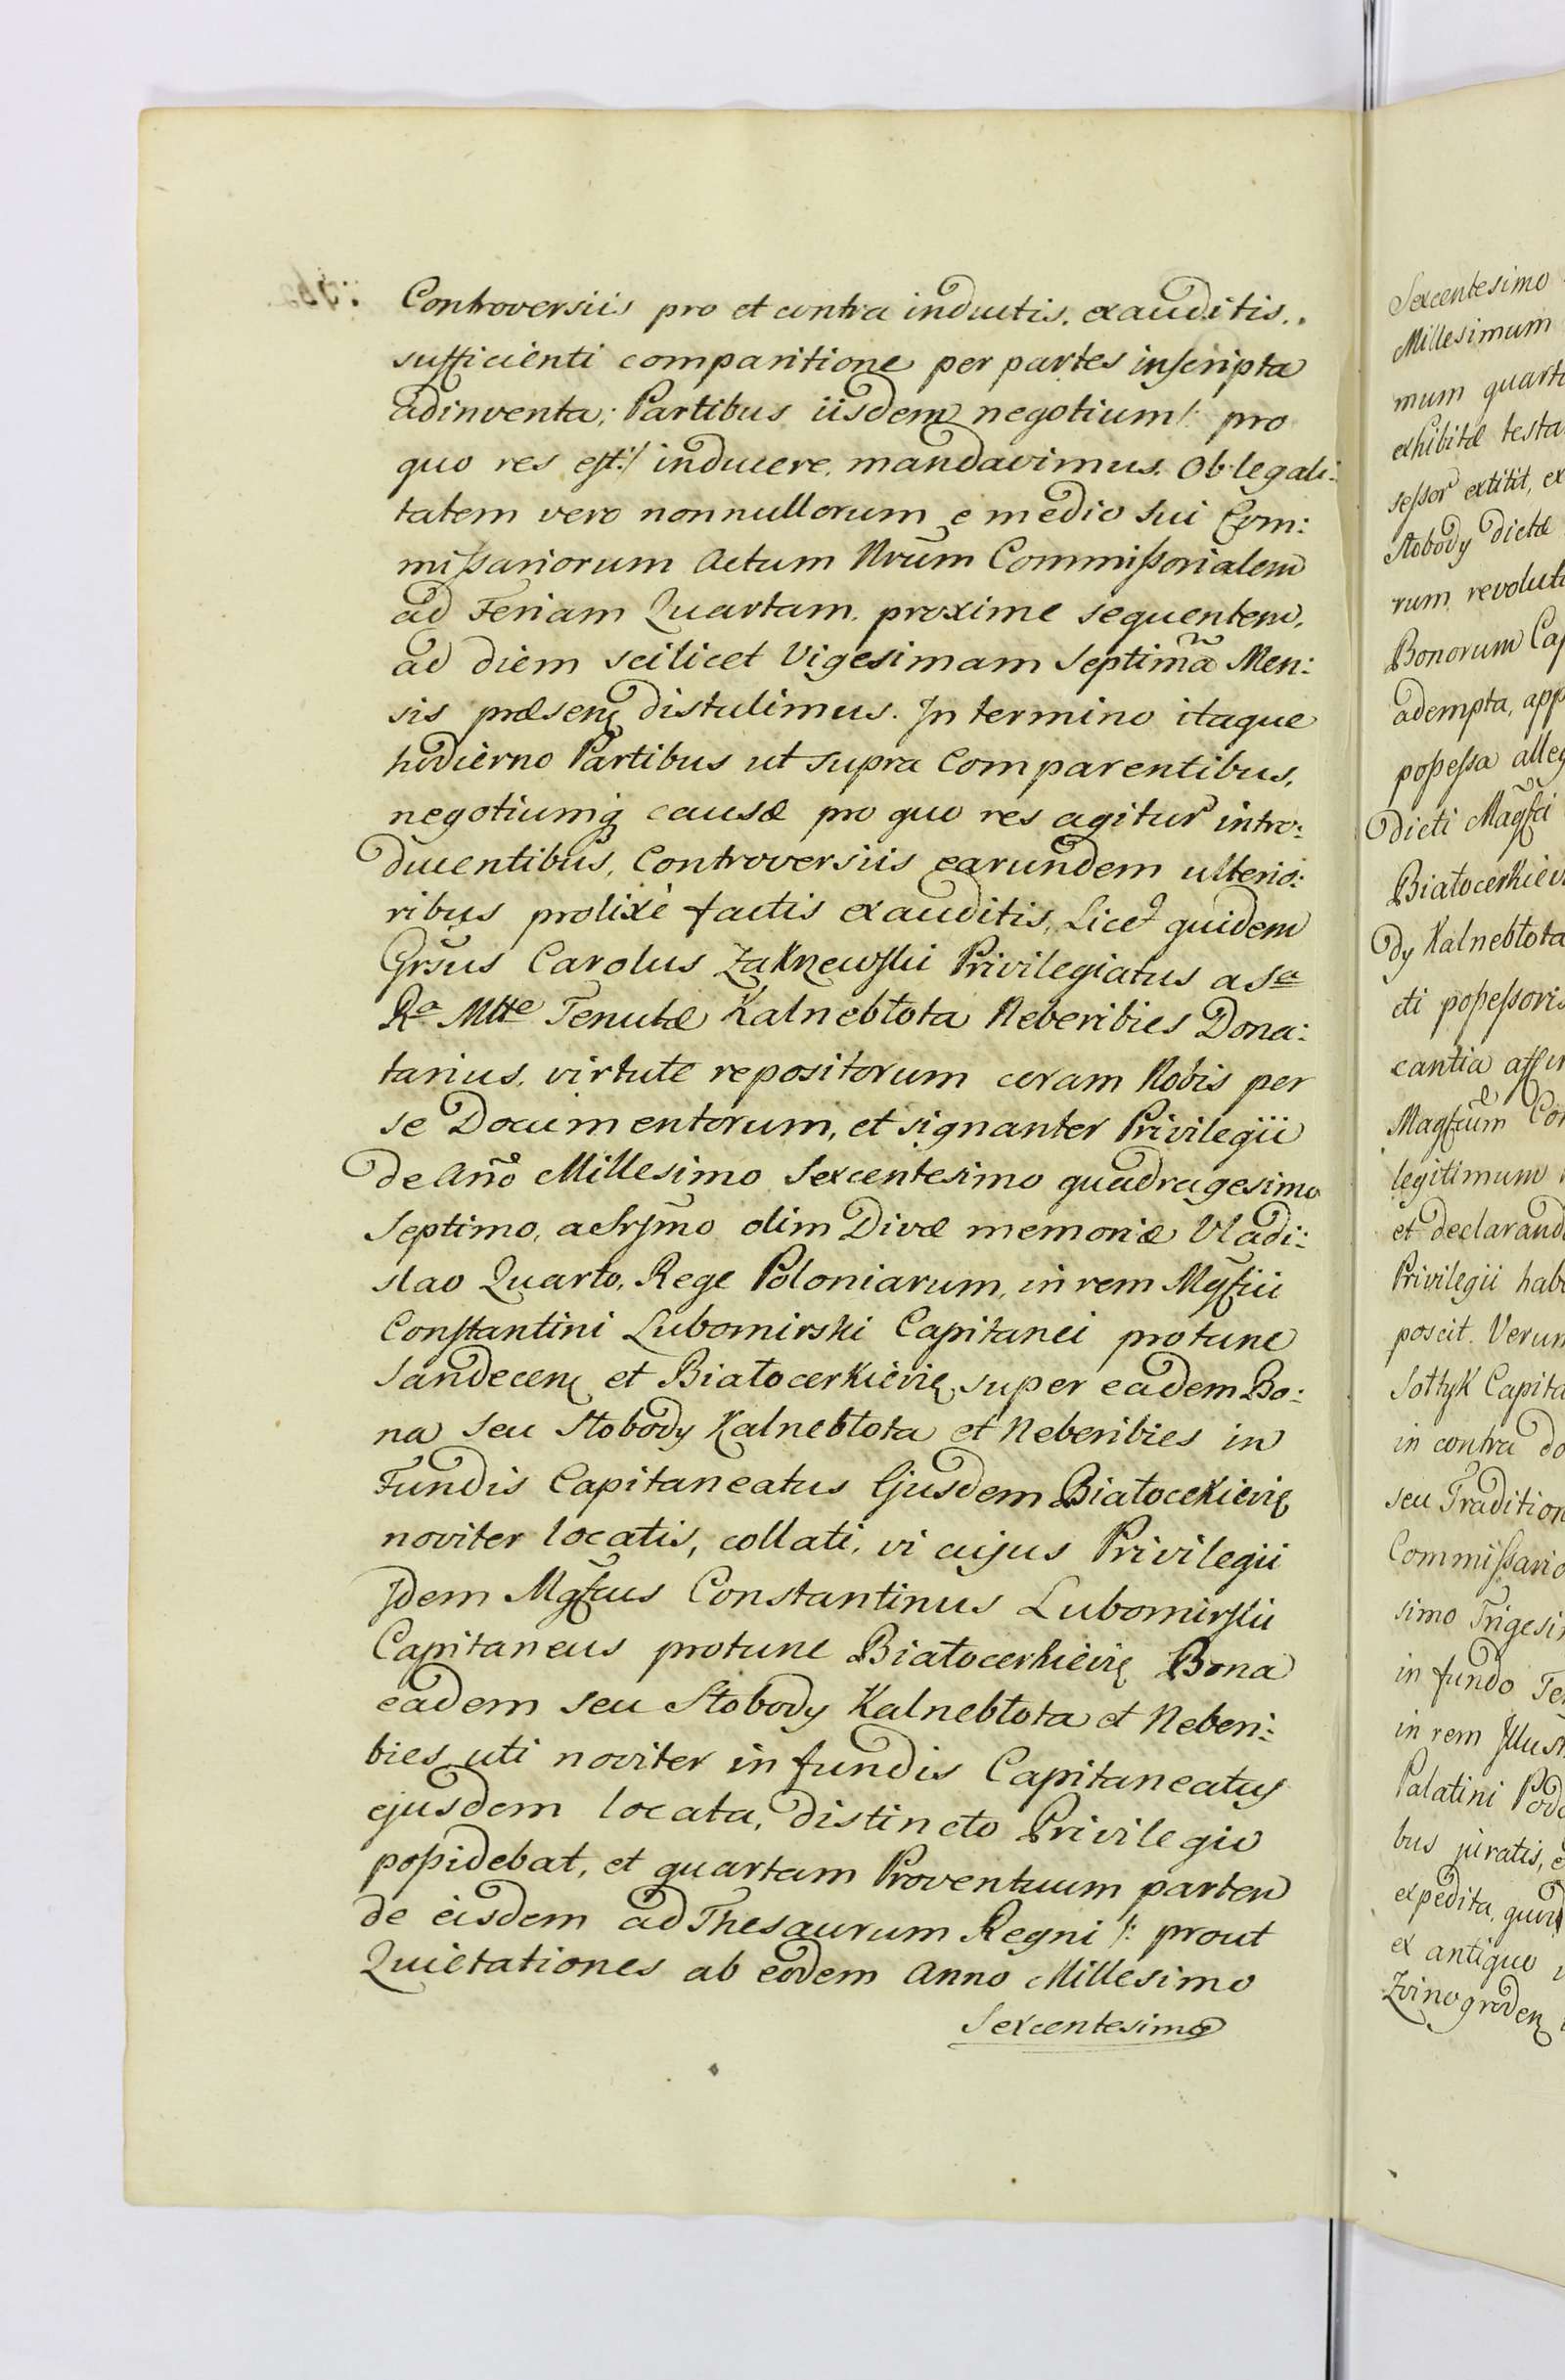 Controversiis pro et contra inductis. exauditis.,
sufficienti comparitione per partes inscripta
adinventa; Partibus iisdem negotium /: pro
quo res est :/ inducere, mandavimus. Ob legali:
tatem vero nonnullorum e medio sui Com:
missariorum Actum Nrũm Commissorialem
ad Feriam Quartam. proxime sequentem,
ad diem scilicet Vigesimam Septimã Men:
sis præsenȩ distulimus. In termino itaque
hodierno Partibus ut supra Comparentibus,
negotiumqȝ causæ pro quo res agitur intro:
ducentibus, Controversiis earundem ulterio:
ribus prolixè factis exauditis, Licet quidem
Grs̃us Carolus Zakrzewski Privilegiatus a Sa
Ra Mtte Tenutæ Kalnebłota Neberibies Dona:
tarius, virtute repositorum coram Nobis per
se Documentorum, et signanter Privilegii
de Año Millesimo Sexcentesimo quadragesimo
Septimo, a Srjmo olim Divæ memoriæ Vladi:
slao Quarto, Rege Poloniarum, in rem Mgf̃ici
Constantini Lubomirski Capitanei protunc
Sandecenȩ et Białocerkieviȩ super eadem Bo:
na seu Słobody Kalnebłota et Neberibies in
Fundis Capitaneatus Ejusdem Białocekieviȩ
noviter locatis, collati, vi cujus Privilegii
Idem Mgf̃cus Constantinus Lubomirski
Capitaneus protunc Białocerkieviȩ Bona
eadem seu Słobody Kalnebłota et Neberi:
bies uti noviter in fundis Capitaneatus
ejusdem locata, distincto Privilegio
possidebat, et quartam Proventuum partem
de eisdem ad Thesaurum Regni /: prout
Quietationes ab eodem Anno Millesimo
Sexcentesimo
Sexcentesimo
Millesimum
mum quart
exhibitæ testa
sessor extitit, ex
Słobody dictæ
rum revolut
Bonorum Cap
adempta, app
possessa alleg
Dicti Magf̃ci
Białocerkiev
dy Kalnebłota
cti possessoris
cantia
Magf̃cum Con
legitimum
et declarand
Privilegii hab
poscit. Verum
Sołtyk Capita
in contra do
seu Tradition
Commissario
simo Trigesi
in fundo Te
in rem Illus
Palatini Podo
bus juratis, e
expedita,
ex antiquo
Zvinogrodenȩ